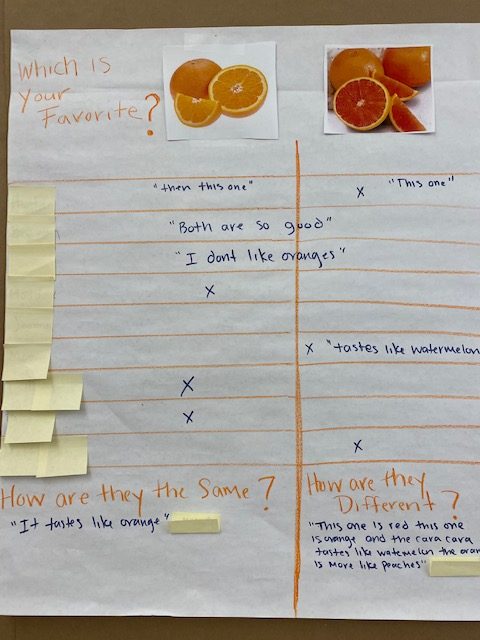 Which is
Your
Favorite?
"then this one" X "This one"
"Both are so good"
"I dont like oranges"
X
X "tastes like watermelon
X
X
X
How are they the Same?
"It tastes like orange"
How are they
Different?
"This one is red this one
is orange and the cara cara
tastes like watemelon the oran
is more like peaches"